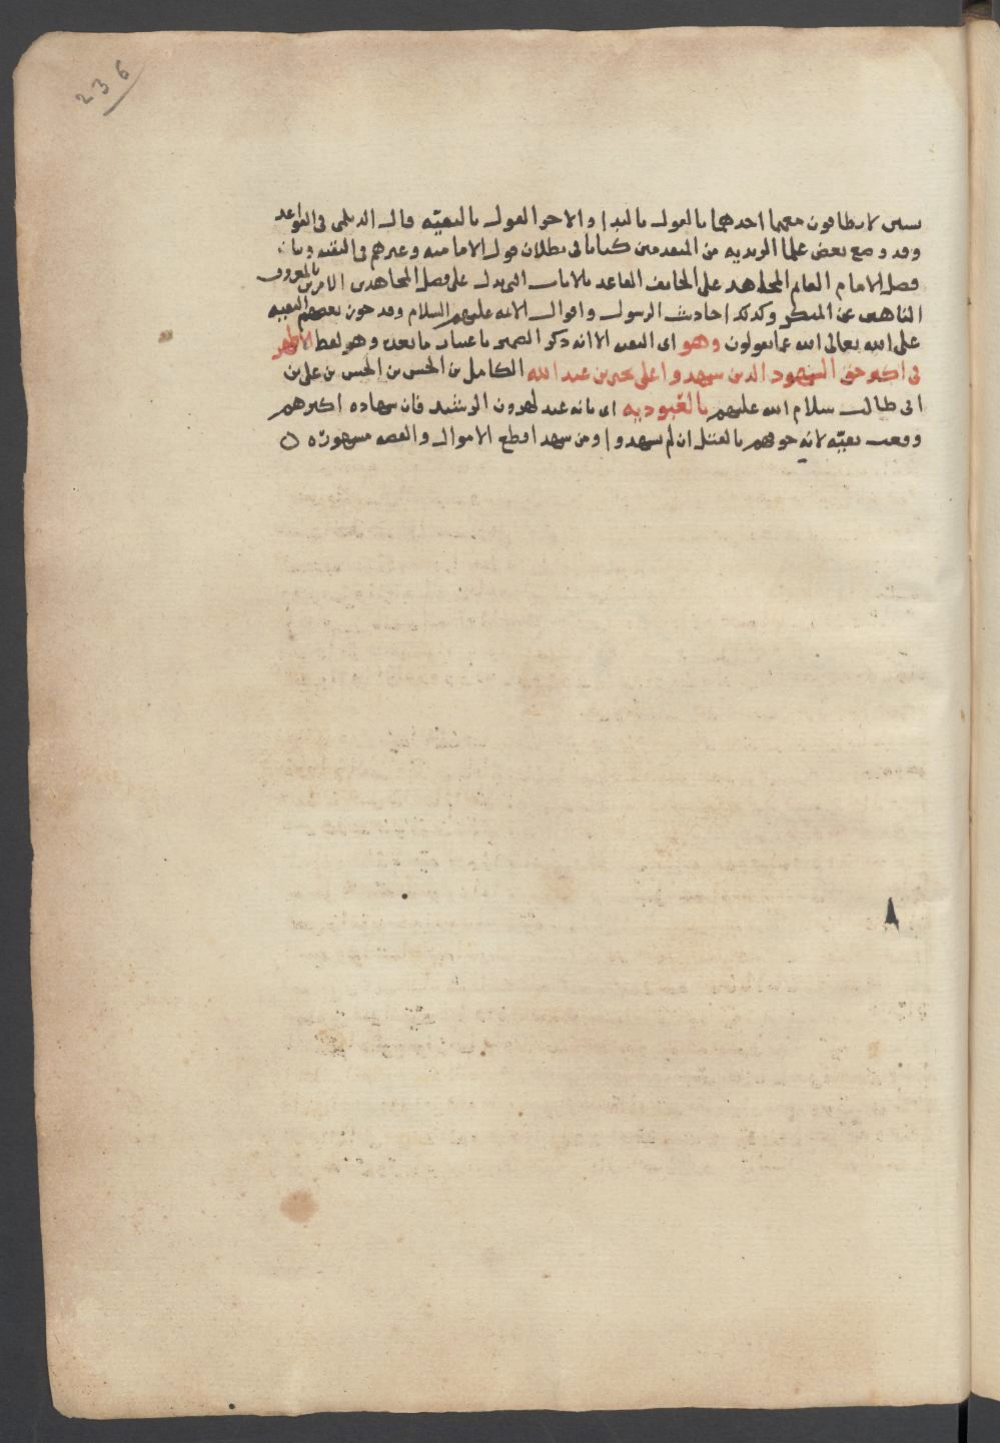 236
سىىں لا ىطاقون معهما احدهما بالقول بالبدا والاخر القول بالتقيّه قال الديلمي في القواعد
وقد وضع بعض علما الزيديه من المتقدمين كتابا في بطلان قول الاماميه وغيرهم في التقيه وبيان
فضل الامام القايم المجاهد على الخايف القاعد بالايات التي تدل على فضل المجاهدين الامرين بالمعروف
الناهين عن المنكر وكذلك احاديث الرسول واقوال الايمه عليهم السلام وقد جوز بعضهم التقيه
على الله تعالى الله عما يقولون وهو اى التقيه الا انه ذكر الضمير باعتبار ما بعده وهو لفظ الاظهر
في اكثر حق الشهود الذين شهدوا على يحيى بن عبدالله الكامل بن الحسن بن الحسن بن علي بن
ابى طالب سلام الله عليهم بالعُبوديه اى بانه عبد لهرون الرشيد فان شهاده اكثرهم
وقعت تقيّه لانه خوفهم بالقتل ان لم يشهدوا ومن شهد اقطع الاموال والقصه مشهورة ه